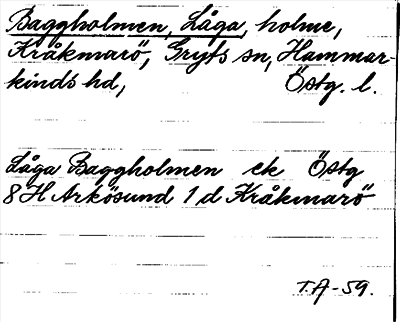 Baggholmen, Låga, holme,
Kråkmarö, Gryts sn, Hammar-
kinds hd, Östg. l.
Låga Baggholmen ek Östg
8 H Arkösund 1 d Kråkmarö
T.A-59.